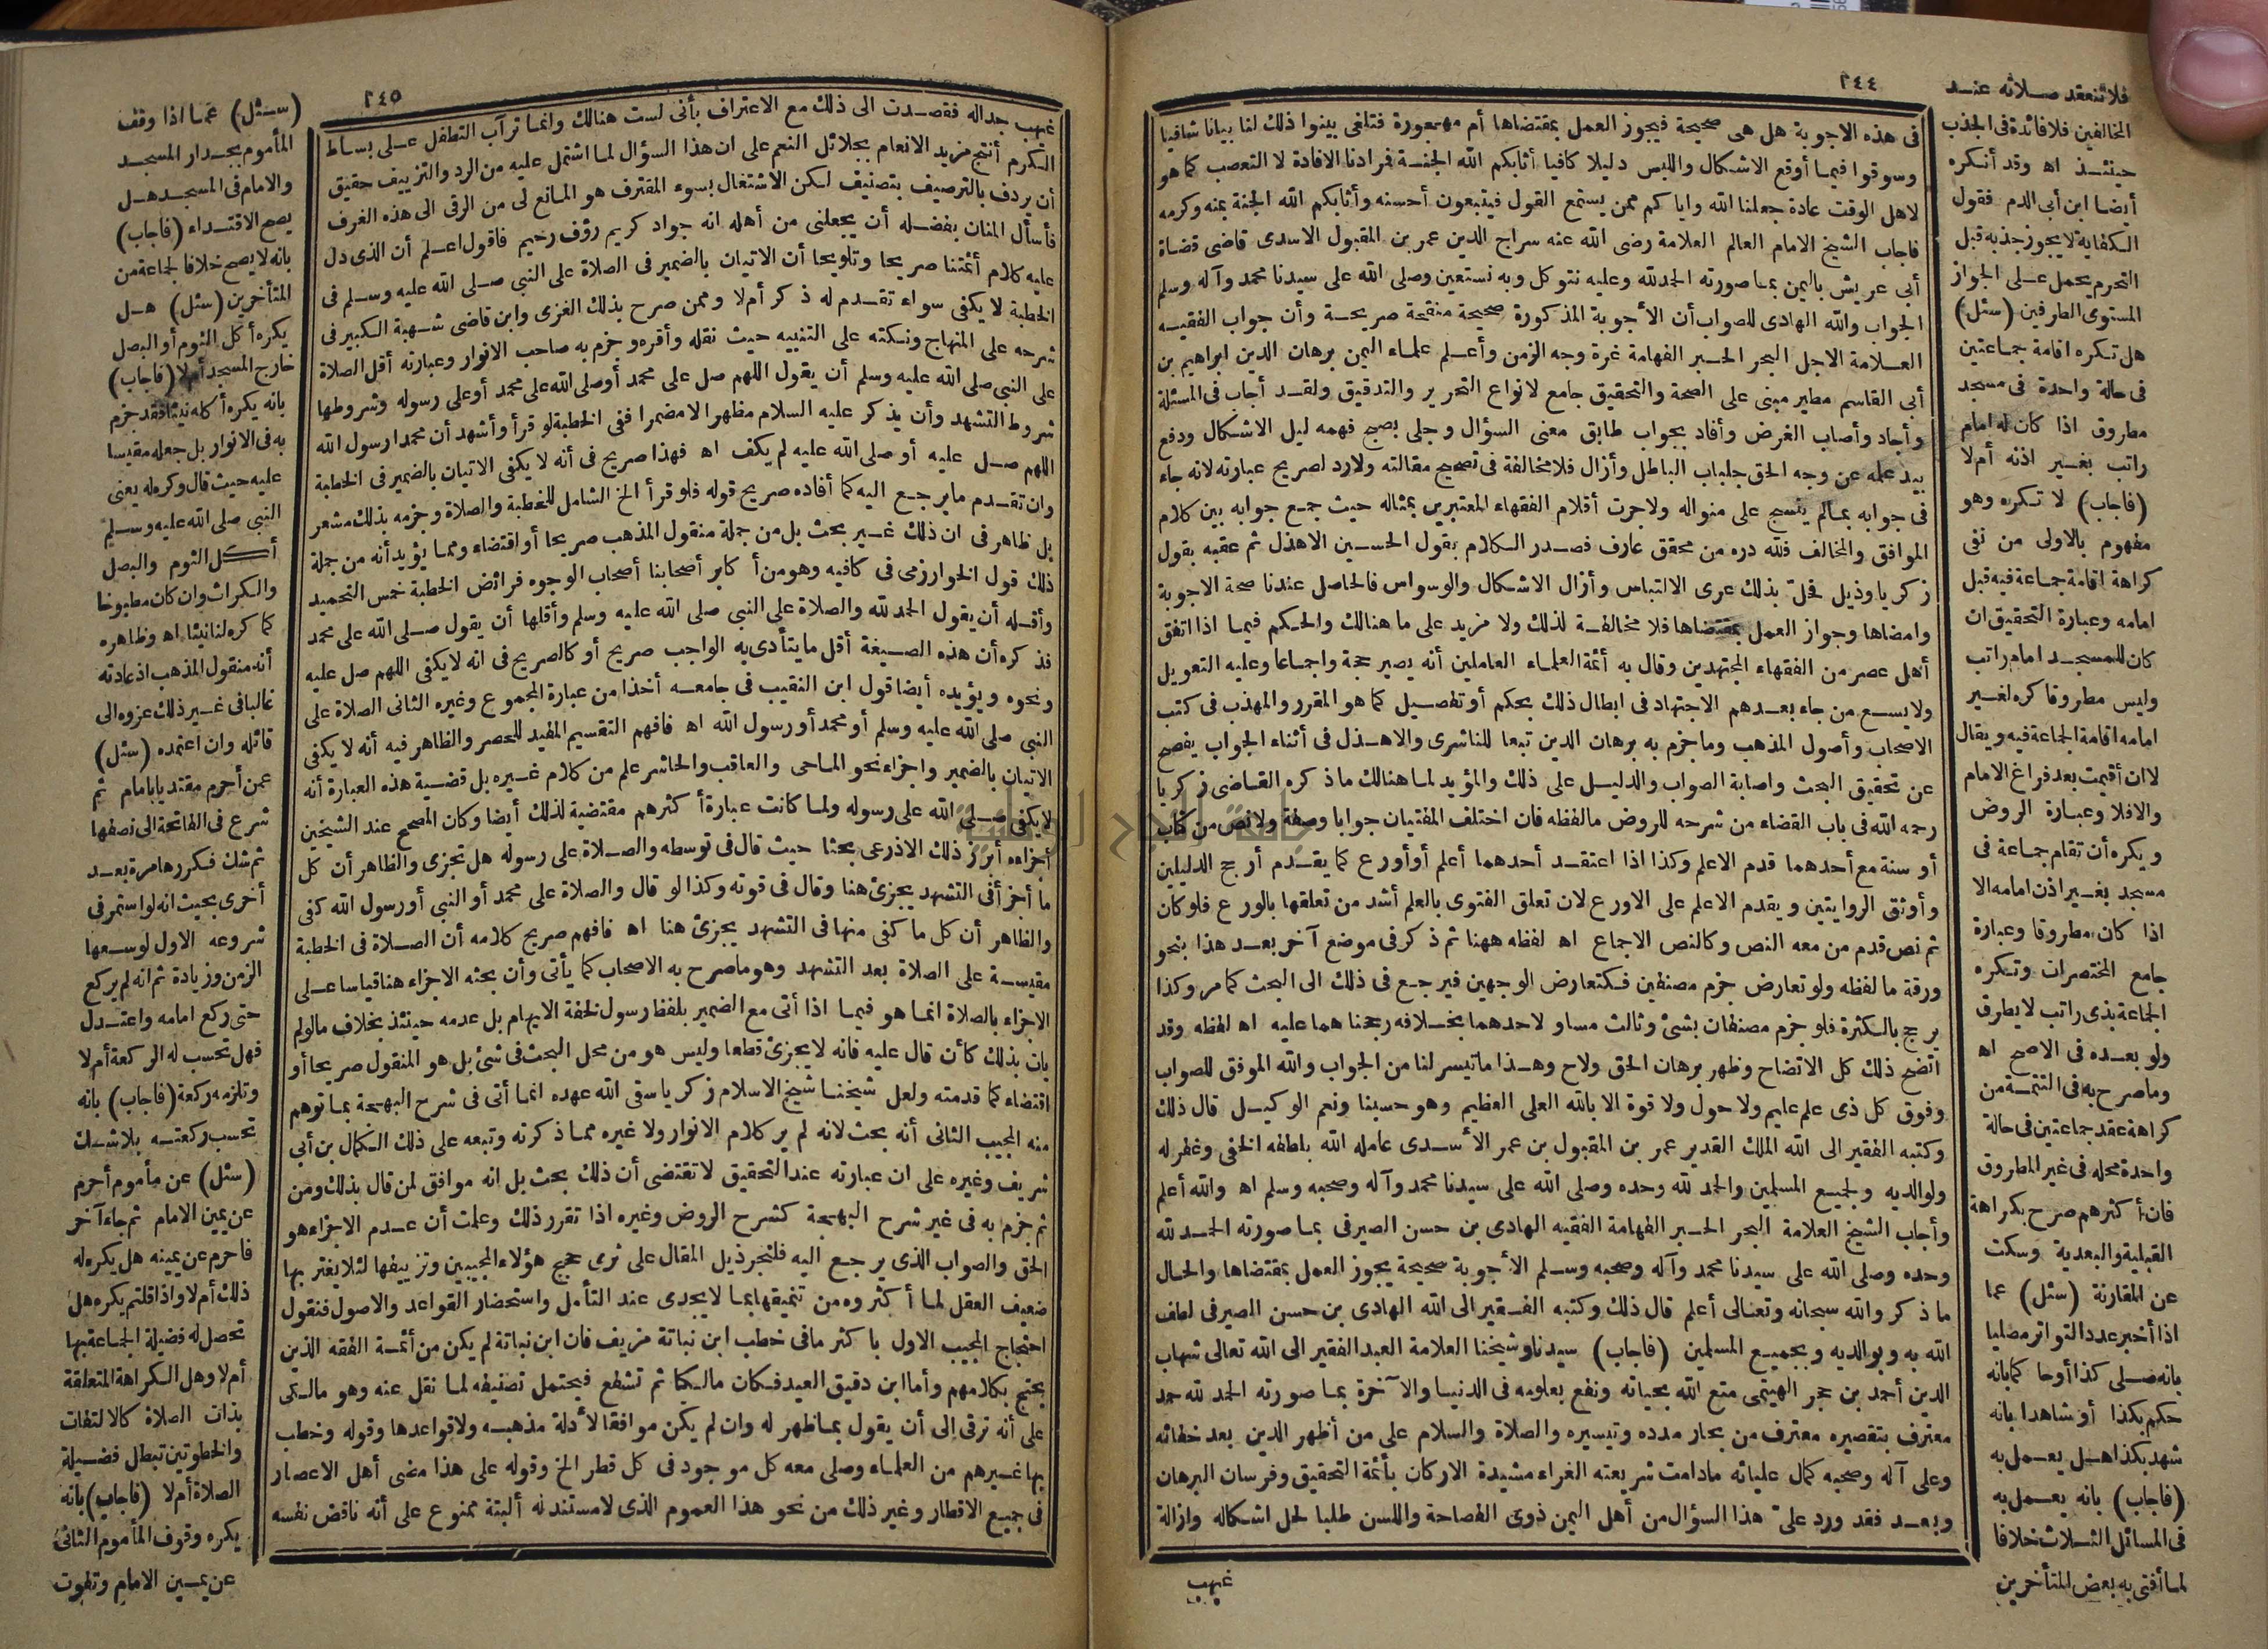 ٢٤٤
فى هذه الاجوبة هل هى صحيحة فيجوز العمل بمقتضاها أم مهجورة فتلغى بينوا ذلك لنا بيانا شافيا
وسوقوا فيما أوقع الاشكال واللبس دليلا كافيا أثابكم الله الجنة فرادنا الافادة لا التعصب كما هو
لاهل الوقت عادة جعلنا الله واياكم ممن يستمع القول فيتبعون أحسنه وأثابكم الله الجنة بمنه وكرمه
فاجاب الشيخ الامام العالم العلامة رضى الله عنه سراج الدين عمر بن المقبول الاسدى قاضى قضاة
أبى عريش باليمن بما صورته الحمد لله وعليه نتوكل وبه نستعين وصلى الله على سيدنا محمد وآله وسلم
الجواب والله الهادى للصواب أن الأجوبة المذكورة صحيحة منقحة صريحة وأن جواب الفقيه
العلامة الاجل البحر الحبر الفهامة غرة وجه الزمن وأعلم علماء اليمن برهان الدين ابراهيم بن
أبى القاسم مطير مبنى على الصحة والتحقيق جامع لانواع التحرير والتدقيق ولقد أجاب فى المسئلة
وأجاد وأصاب الغرض وأفاد بجواب طابق معنى السؤال وجلى بصبح فهمه ليل الاشكال ودفع
بيد علمه عن وجه الحق جلباب الباطل وأزال فلا مخالفة فى تصحيح مقالته ولا رد لصريح عبارته لانه جاء
فى جوابه بمالم ينسج على منواله ولا جرت أقلام الفقهاء المعتبرين بمثاله حيث جمع جوابه بين كلام
الموافق والمخالف فلله دره من محقق عارف فصدر الكلام بقول الحسين الاهدل ثم عقبه بقول
زكريا وذيل فحل بذلك عرى الالتباس وأزال الاشكال والوسواس فالحاصل عندنا صحة الاجوبة
وامضاها وجواز العمل بمقتضاها فلا مخالفة لذلك ولا مزيد على ما هنالك والحكم فيما اذا اتفق
أهل عصر من الفقهاء المجتهدين وقال به أئمة العلماء العاملين أنه يصير حجة واجماعا وعليه التعويل
ولا يسع من جاء بعدهم الاجتهاد فى ابطال ذلك بحكم أو تفصيل كما هو المقرر والمهذب فى كتب
الاصحاب وأصول المذهب وما جزم به برهان الدين تبعا للناشرى والاهدل فى أثناء الجواب يفصح
عن تحقيق البحث واصابة الصواب والدليل على ذلك والمؤيد لما هنالك ما ذكره القاضى زكريا
رحمه الله فى باب القضاء من شرحه للروض مالفظه فان اختلف المفتيان جوابا وصفة ولا نص من كتاب
أو سنة مع أحدهما قدم الاعلم وكذا اذا اعتقد أحدهما أعلم أو أورع كما يقدم أرجح الدليلين
وأوثق الروايتين ويقدم الاعلم على الاورع لان تعلق الفتوى بالعلم أشد من تعلقها بالورع فلو كان
ثم نص قدم من معه النص وكالنص الاجماع اه لفظه ههنا ثم ذكر فى موضع آخر بعد هذا بنحو
ورقة ما لفظه ولو تعارض جزم مصنفين فكتعارض الوجهين فيرجع فى ذلك الى البحث كما مر وكذا
يرجح بالكثرة فلو جزم مصنفان بشئ وثالث مساو لاحدهما بخلافه رجحنا هما عليه اه لفظه وقد
اتضح ذلك كل الاتضاح وظهر برهان الحق ولاح وهذا ما تيسر لنا من الجواب والله الموفق للصواب
وفوق كل ذى علم عليم ولا حول ولا قوة الا بالله العلى العظيم وهو حسبنا ونعم الوكيل قال ذلك
وكتبه الفقير الى الله الملك القدير عمر بن المقبول بن عمر الأسدى عامله الله بلطفه الخفى وغفر له
ولوالديه ولجميع المسلمين والحمد لله وحده وصلى الله على سيدنا محمد وآله وصحبه وسلم اه والله أعلم
وأجاب الشيخ العلامة البحر الحبر الفهامة الفقيه الهادى بن حسن الصيرفى بما صورته الحمد لله
وحده وصلى الله على سيدنا محمد وآله وصحبه وسلم الأجوبة صحيحة يجوز العمل بمقتضاها والحال
ما ذكر والله سبحانه وتعالى أعلم قال ذلك وكتبه الفقير الى الله الهادى بن حسن الصيرفى لطف
الله به وبوالديه وبجميع المسلمين (فاجاب) سيدنا وشيخنا العلامة العبد الفقير الى الله تعالى شهاب
الدين أحمد بن حجر الهيتمى متع الله بحياته ونفع بعلومه فى الدنيا والآخرة بما صورته الحمد لله حمد
معترف بتقصيره مغترف من بحار مدده وتيسيره والصلاة والسلام على من أظهر الدين بعد خفائه
وعلى آله وصحبه كمال عليائه مادامت شريعته الغراء مشيدة الاركان بأئمة التحقيق وفرسان البرهان
وبعد فقد ورد على هذا السؤال من أهل اليمن ذوى الفصاحة واللسن طلبا لحل اشكاله وازالة
غيهب
فلا تنعقد صلاته عند
المخالفين فلا فائدة فى الجذب
حينئذ اه وقد أنكره
أيضا ابن أبى الدم فقول
الكفاية لا يجوز جذبه قبل
التحرم يحمل على الجواز
المستوى الطرفين (سئل)
هل تكره اقامة جماعتين
فى حالة واحدة فى مسجد
مطروق اذا كان له امام
راتب بغير اذنه أم لا
(فاجاب) لا تكره وهو
مفهوم بالاولى من نفى
كراهة اقامة جماعة فيه قبل
امامه وعبارة التحقيق ان
كان للمسجد امام راتب
وليس مطروقا كره لغير
امامه اقامة الجماعة فيه ويقال
لا ان أقيمت بعد فراغ الامام
والافلا وعبارة الروض
ويكره أن تقام جماعة فى
مسجد بغير اذن امامه الا
اذا كان مطروقا وعبارة
جامع المختصرات وتكره
الجماعة بذى راتب لا يطرق
ولو بعده فى الاصح اه
وما صرح به فى التتمة من
كراهة عقد جماعتين فى حالة
واحدة محله فى غير المطروق
فان أكثرهم صرح بكراهة
القبلية والبعدية وسكت
عن المقارنة (سئل) عما
اذا أخبر عدد التواتر مصليا
بانه صلى كذا أو حاكما بانه
حكم بكذا أو شاهدا بانه
شهد بكذا هل يعمل به
(فاجاب) بانه يعمل به
فى المسائل الثلاث خلافا
لما أفتى به بعض المتأخرين
٢٤٥
غيهب جداله فقصدت الى ذلك مع الاعتراف بأنى لست هنالك وانما ترآب التطفل على بساط
الكرم أنتج مزيد الانعام بجلائل النعم على ان هذا السؤال لما اشتمل عليه من الرد والتزييف حقيق
أن يردف بالترصيف بتصنيف لكن الاشتغال بسوء المقترف هو المانع لى من الرقى الى هذه الغرف
فأسأل المنان بفضله أن يجعلنى من أهله انه جواد كريم رؤف رحيم فاقول اعلم أن الذى دل
عليه كلام أئمتنا صريحا وتلويحا أن الاتيان بالضمير فى الصلاة على النبي صلى الله عليه وسلم فى
الخطبة لا يكفى سواء تقدم له ذكر أم لا وممن صرح بذلك الغزى وابن قاضى شهبة الكبير فى
شرحه على المنهاج ونكته على التنبيه حيث نقله وأقره وجزم به صاحب الانوار وعبارته أقل الصلاة
على النبي صلى الله عليه وسلم أن يقول اللهم صل على محمد أو صلى الله على محمد أو على رسوله وشروطها
شروط التشهد وأن يذكر عليه السلام مظهرا لا مضمرا ففى الخطبة لو قرأ وأشهد أن محمدا رسول الله
اللهم صل عليه أو صلى الله عليه لم يكف اه فهذا صريح فى أنه لا يكفى الاتيان بالضمير فى الخطبة
وان تقدم ما يرجع اليه كما أفاده صريح قوله فلو قرأ الخ الشامل للخطبة والصلاة وجزمه بذلك مشعر
بل ظاهر فى ان ذلك غير بحث بل من جملة منقول المذهب صريحا أو اقتضاء ومما يؤيد أنه من جملة
ذلك قول الخوارزمى فى كافيه وهو من أكابر أصحابنا أصحاب الوجوه فرائض الخطبة خمس التحميد
وأقله أن يقول الحمد لله والصلاة على النبي صلى الله عليه وسلم وأقلها أن يقول صلى الله على محمد
فذكره أن هذه الصيغة أقل ما يتأدى به الواجب صريح أو كالصريح فى انه لا يكفى اللهم صل عليه
ونحوه ويؤيده أيضا قول ابن النقيب فى جامعه أخذا من عبارة المجموع وغيره الثانى الصلاة على
النبي صلى الله عليه وسلم أو محمد أو رسول الله اه فافهم التقسيم المفيد للحصر والظاهر فيه أنه لا يكفى
الاتيان بالضمير واجزاء نحو الماحى والعاقب والحاشر علم من كلام غيره بل قضية هذه العبارة أنه
لا يكفى صلى الله على رسوله ولما كانت عبارة أكثرهم مقتضية لذلك أيضا وكان المصحح عند الشيخين
أجزاءه أبرز ذلك الاذرعى بحثا حيث قال فى توسطه والصلاة على رسوله هل تجزى والظاهر أن كل
ما أجزأ فى التشهد يجزئ هنا وقال فى قوته وكذا لو قال والصلاة على محمد أو النبي أو رسول الله كفى
والظاهر أن كل ما كفى منها فى التشهد يجزئ هنا اه فافهم صريح كلامه أن الصلاة فى الخطبة
مقيسة على الصلاة بعد التشهد وهو ما صرح به الاصحاب كما يأتى وأن بحثه الاجزاء هنا قياسا على
الاجزاء بالصلاة انما هو فيما اذا أتى مع الضمير بلفظ رسول لخفة الايهام بل عدمه حينئذ بخلاف مالو لم
يات بذلك كأن قال عليه فانه لا يجزئ قطعا وليس هو من محل البحث فى شئ بل هو المنقول صريحا أو
اقتضاء كما قدمته ولعل شيخنا شيخ الاسلام زكريا سقى الله عهده انما أتى فى شرح البهجة بما توهم
منه المجيب الثانى أنه بحث لانه لم ير كلام الانوار ولا غيره مما ذكرته وتبعه على ذلك الكمال بن أبى
شريف وغيره على ان عبارته عند التحقيق لا تقتضى أن ذلك بحث بل انه موافق لمن قال بذلك ومن
ثم جزم به فى غير شرح البهجة كشرح الروض وغيره اذا تقرر ذلك وعلمت أن عدم الاجزاء هو
الحق والصواب الذى يرجع اليه فلنجر ذيل المقال على ثرى حجج هؤلاء المجيبين وتزييفها لئلا يغتر بها
ضعيف العقل لما أكثروه من تنميقها بما لا يجدى عند التأمل واستحضار القواعد والاصول فنقول
احتجاج المجيب الاول باكثر مافى خطب ابن نباتة مزيف فان ابن نباتة لم يكن من أئمة الفقه الذين
يحتج بكلامهم وأما ابن دقيق العيد فكان مالكيا ثم تشفع فيحتمل تصنيفه لما نقل عنه وهو مالكى
على أنه ترقى الى أن يقول بما ظهر له وان لم يكن موافقا لأدلة مذهبه ولا قواعدها وقوله وخطب
بها غيرهم من العلماء وصلى معه كل موجود فى كل قطر الخ وقوله على هذا مضى أهل الاعصار
فى جميع الاقطار وغير ذلك من نحو هذا العموم الذى لا مستند له ألبتة ممنوع على أنه ناقض نفسه
(سئل) عما اذا وقف
المأموم بجدار المسجد
والامام فى المسجد هل
يصح الاقتداء (فاجاب)
بانه لا يصح خلافا لجماعة من
المتأخرين (سئل) هل
يكره أكل الثوم أو البصل
خارج المسجد أم لا (فاجاب)
بانه يكره أكله نيئا فقد جزم
به فى الانوار بل جعله مقيسا
عليه حيث قال وكره له يعنى
النبي صلى الله عليه وسلم
أكل الثوم والبصل
والكراث وان كان مطبوخا
كما كره لنا نيئا اه وظاهره
أنه منقول المذهب اذ عادته
غالبا فى غير ذلك عزوه الى
قائله وان اعتمده (سئل)
عمن أحرم مقتديا بامام ثم
شرع فى الفاتحة الى نصفها
ثم شك فكررها مرة بعد
أخرى بحيث انه لو استمر فى
شروعه الاول لوسعها
الزمن وزيادة ثم انه لم يركع
حتى ركع امامه واعتدل
فهل تحسب له الركعة أم لا
وتلزمه ركعة (فاجاب) بانه
تحسب ركعته بلا شك
(سئل) عن مأموم أحرم
عن يمين الامام ثم جاء آخر
فاحرم عن يمينه هل يكره له
ذلك أم لا واذا قلتم يكره هل
تحصل له فضيلة الجماعة بها
أم لا وهل الكراهة المتعلقة
بذات الصلاة كالالتفات
والخطوتين تبطل فضيلة
الصلاة أم لا (فاجاب) بانه
يكره وقوف المأموم الثانى
عن يمين الامام وتفوت